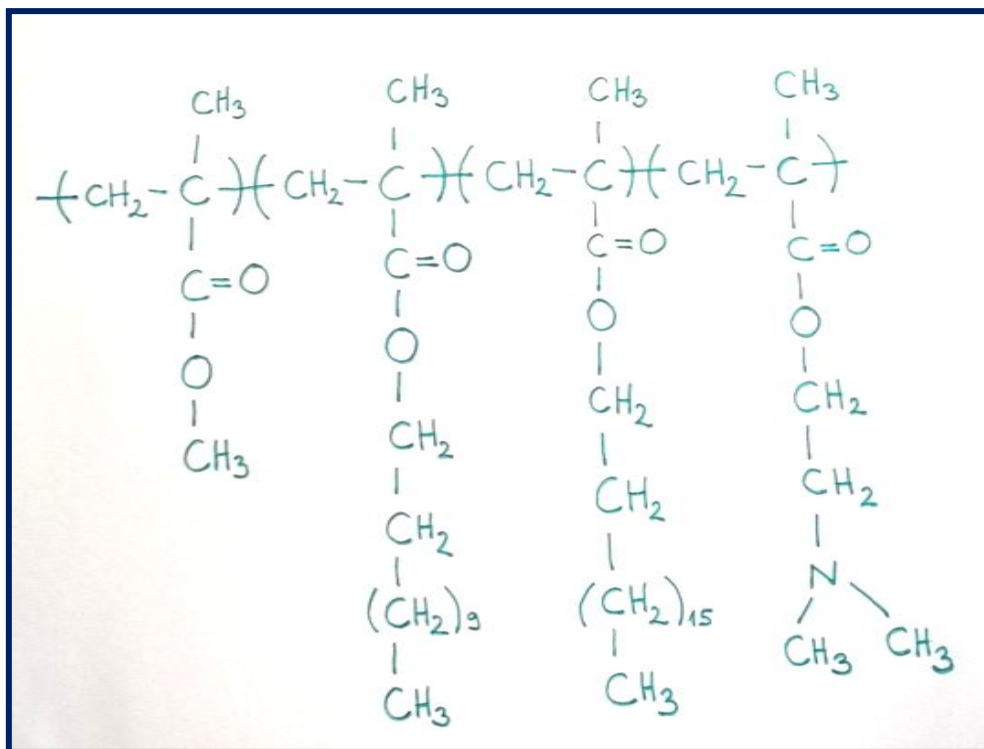 CH3 CH3 CH3 CH3
(CH2-C)(CH2-C)(CH2-C)(CH2-C)
C=O C=O C=O C=O
O O O O
CH3 CH2 CH2 CH2
CH2 CH2 CH2
(CH2)9 (CH2)15 N
CH3 CH3 CH3 CH3